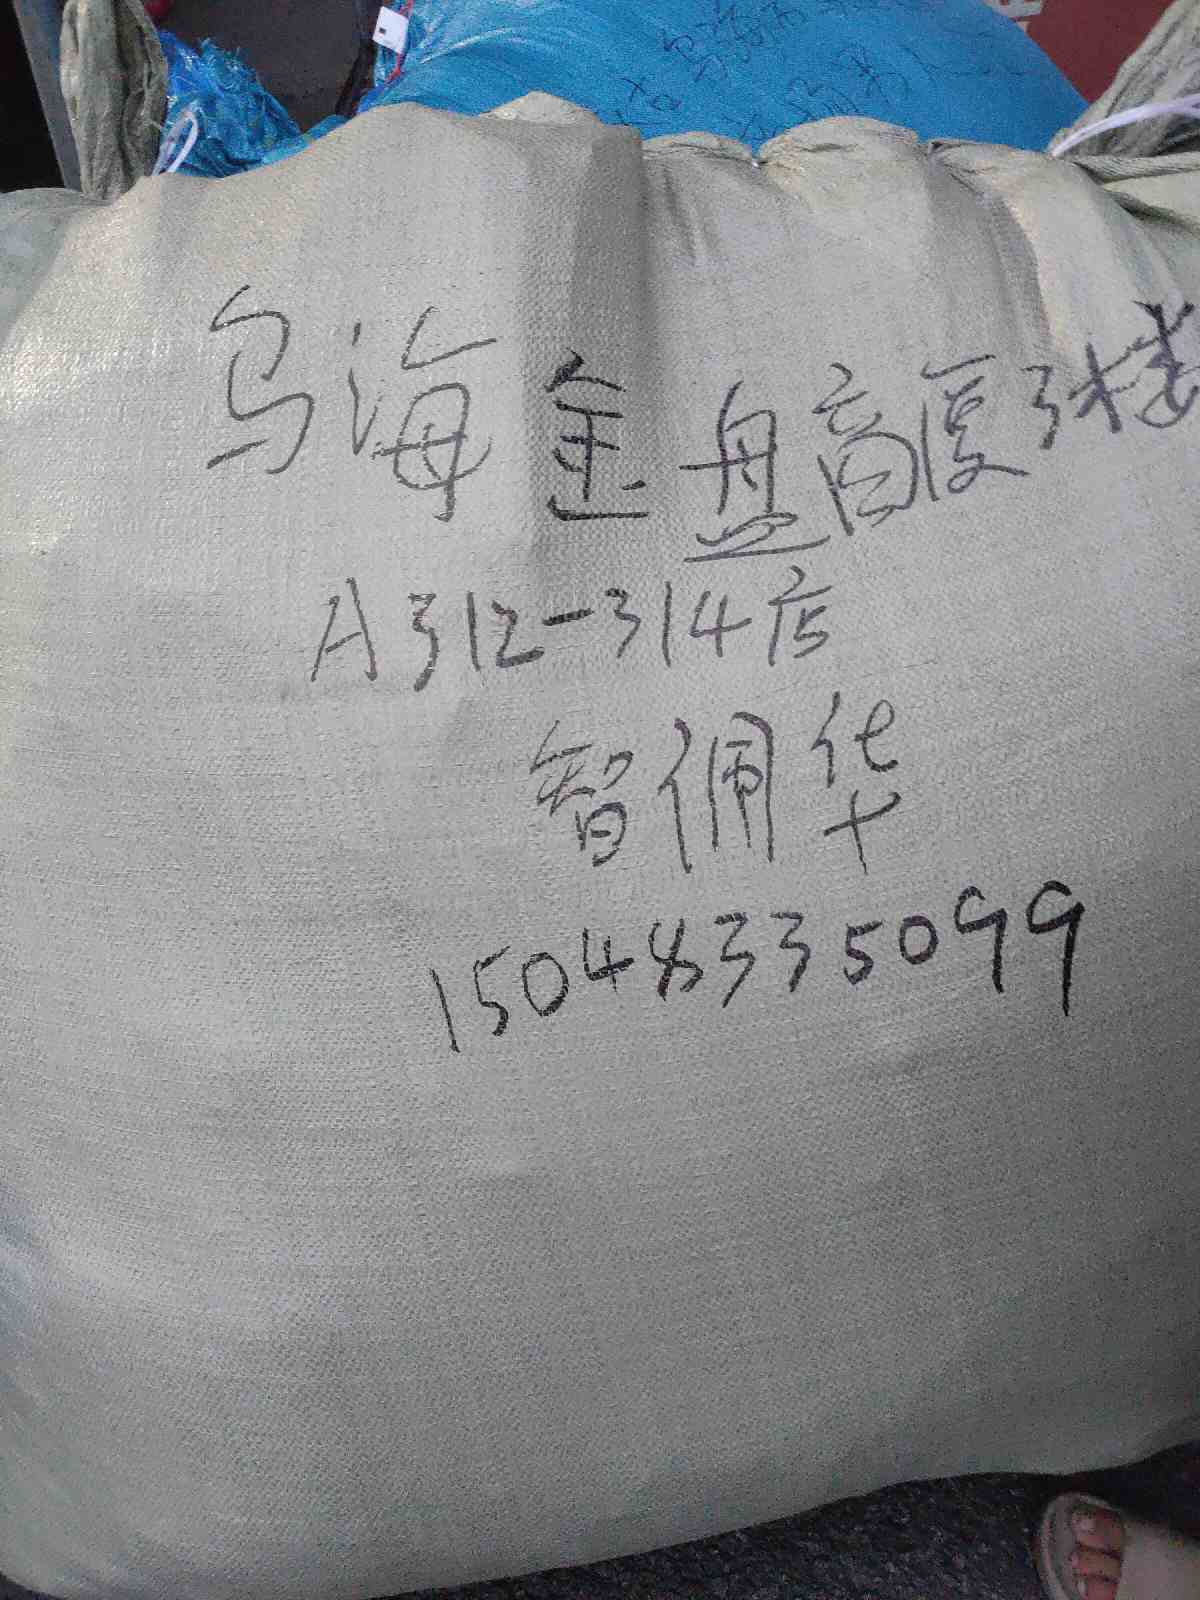 乌海金盘高厦3楼
A312-314店
智佩华
15048335099